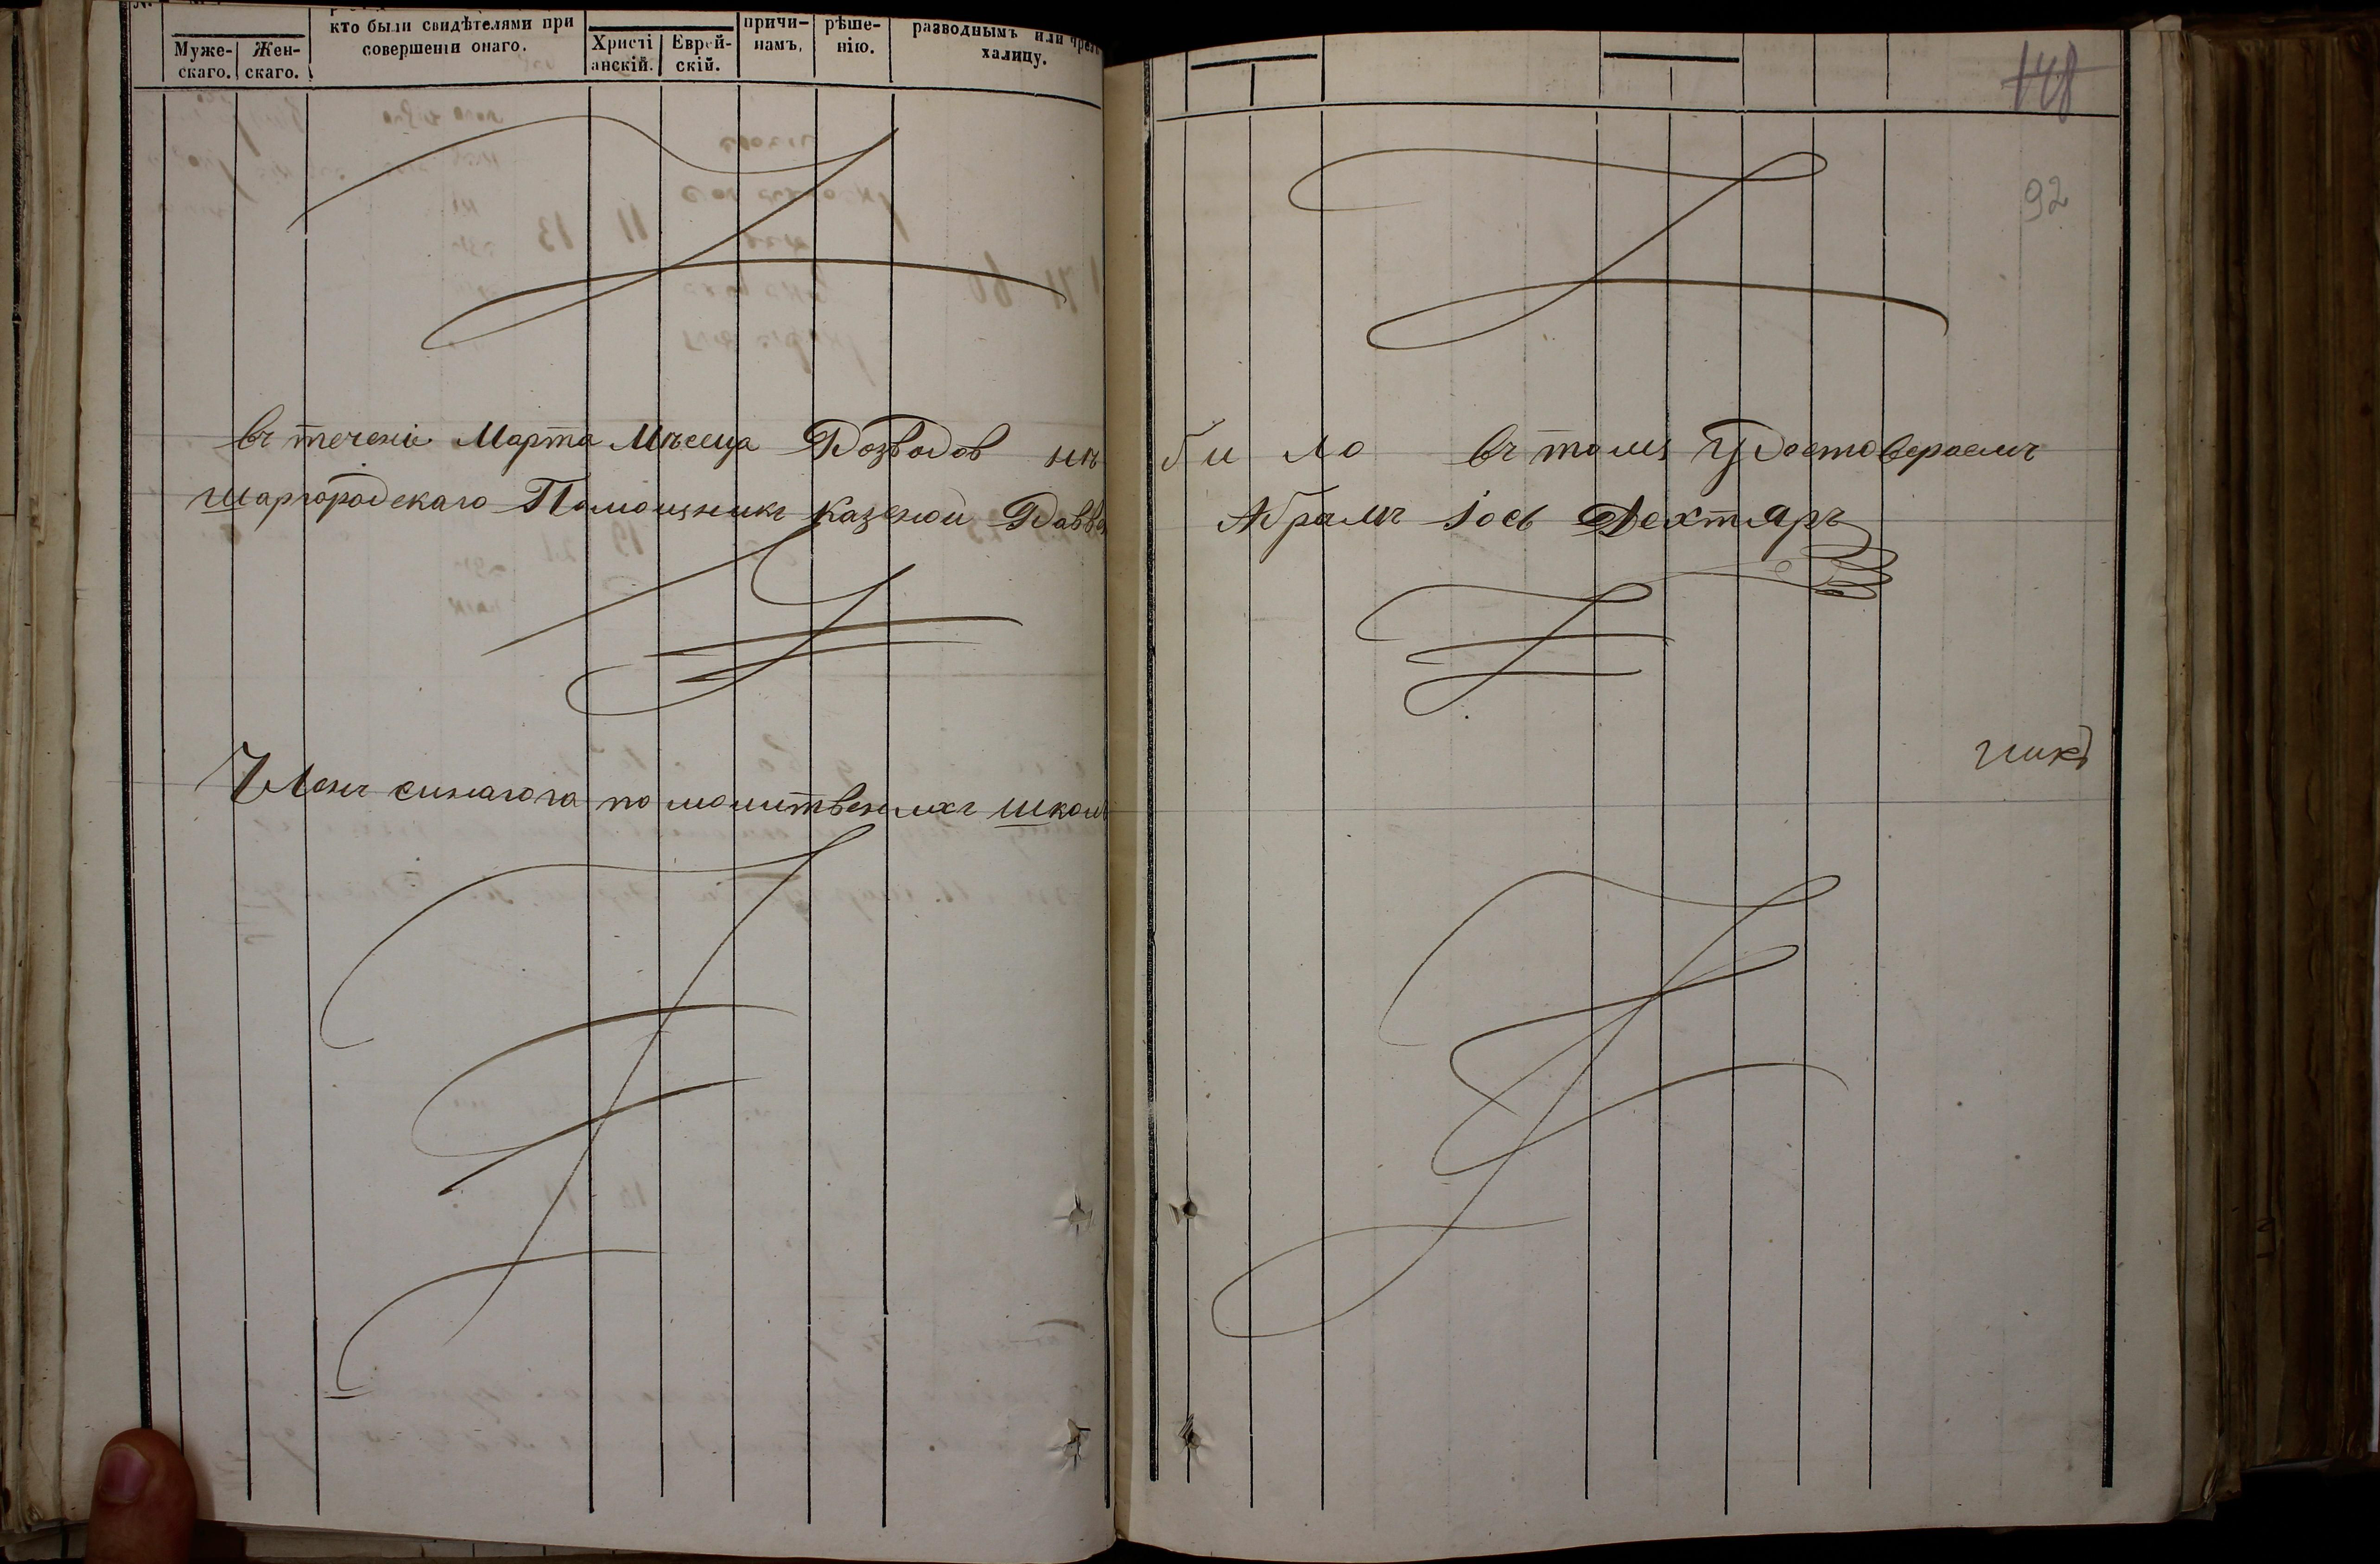 Муже-
скаго.
Жен-
скаго.
кто были свидѣтелями при
совершеніи онаго.
Христі
анскій.
Еврей-
скій.
причи-
намъ.
рѣше-
нію.
разводнымъ или чрезъ
халицу.
148
92
въ течени Марта Мѣсеца Розводов не би ло въ томъ Удостовераемъ
шаргородскаго Помощникъ казеной Равва Абрамъ Іось Дехтяръ
Членъ синагога по молитвенихъ школъ